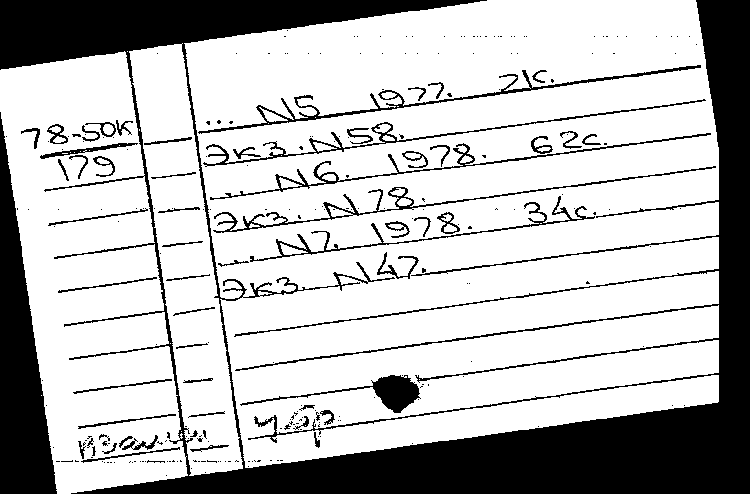 ... N5 1977. 71с.
78-50к
Экз. N58.
179
... N6. 1978. 62с.
Экз. N78.
... N7. 1978. 34с.
Экз. N47.
взамен убр